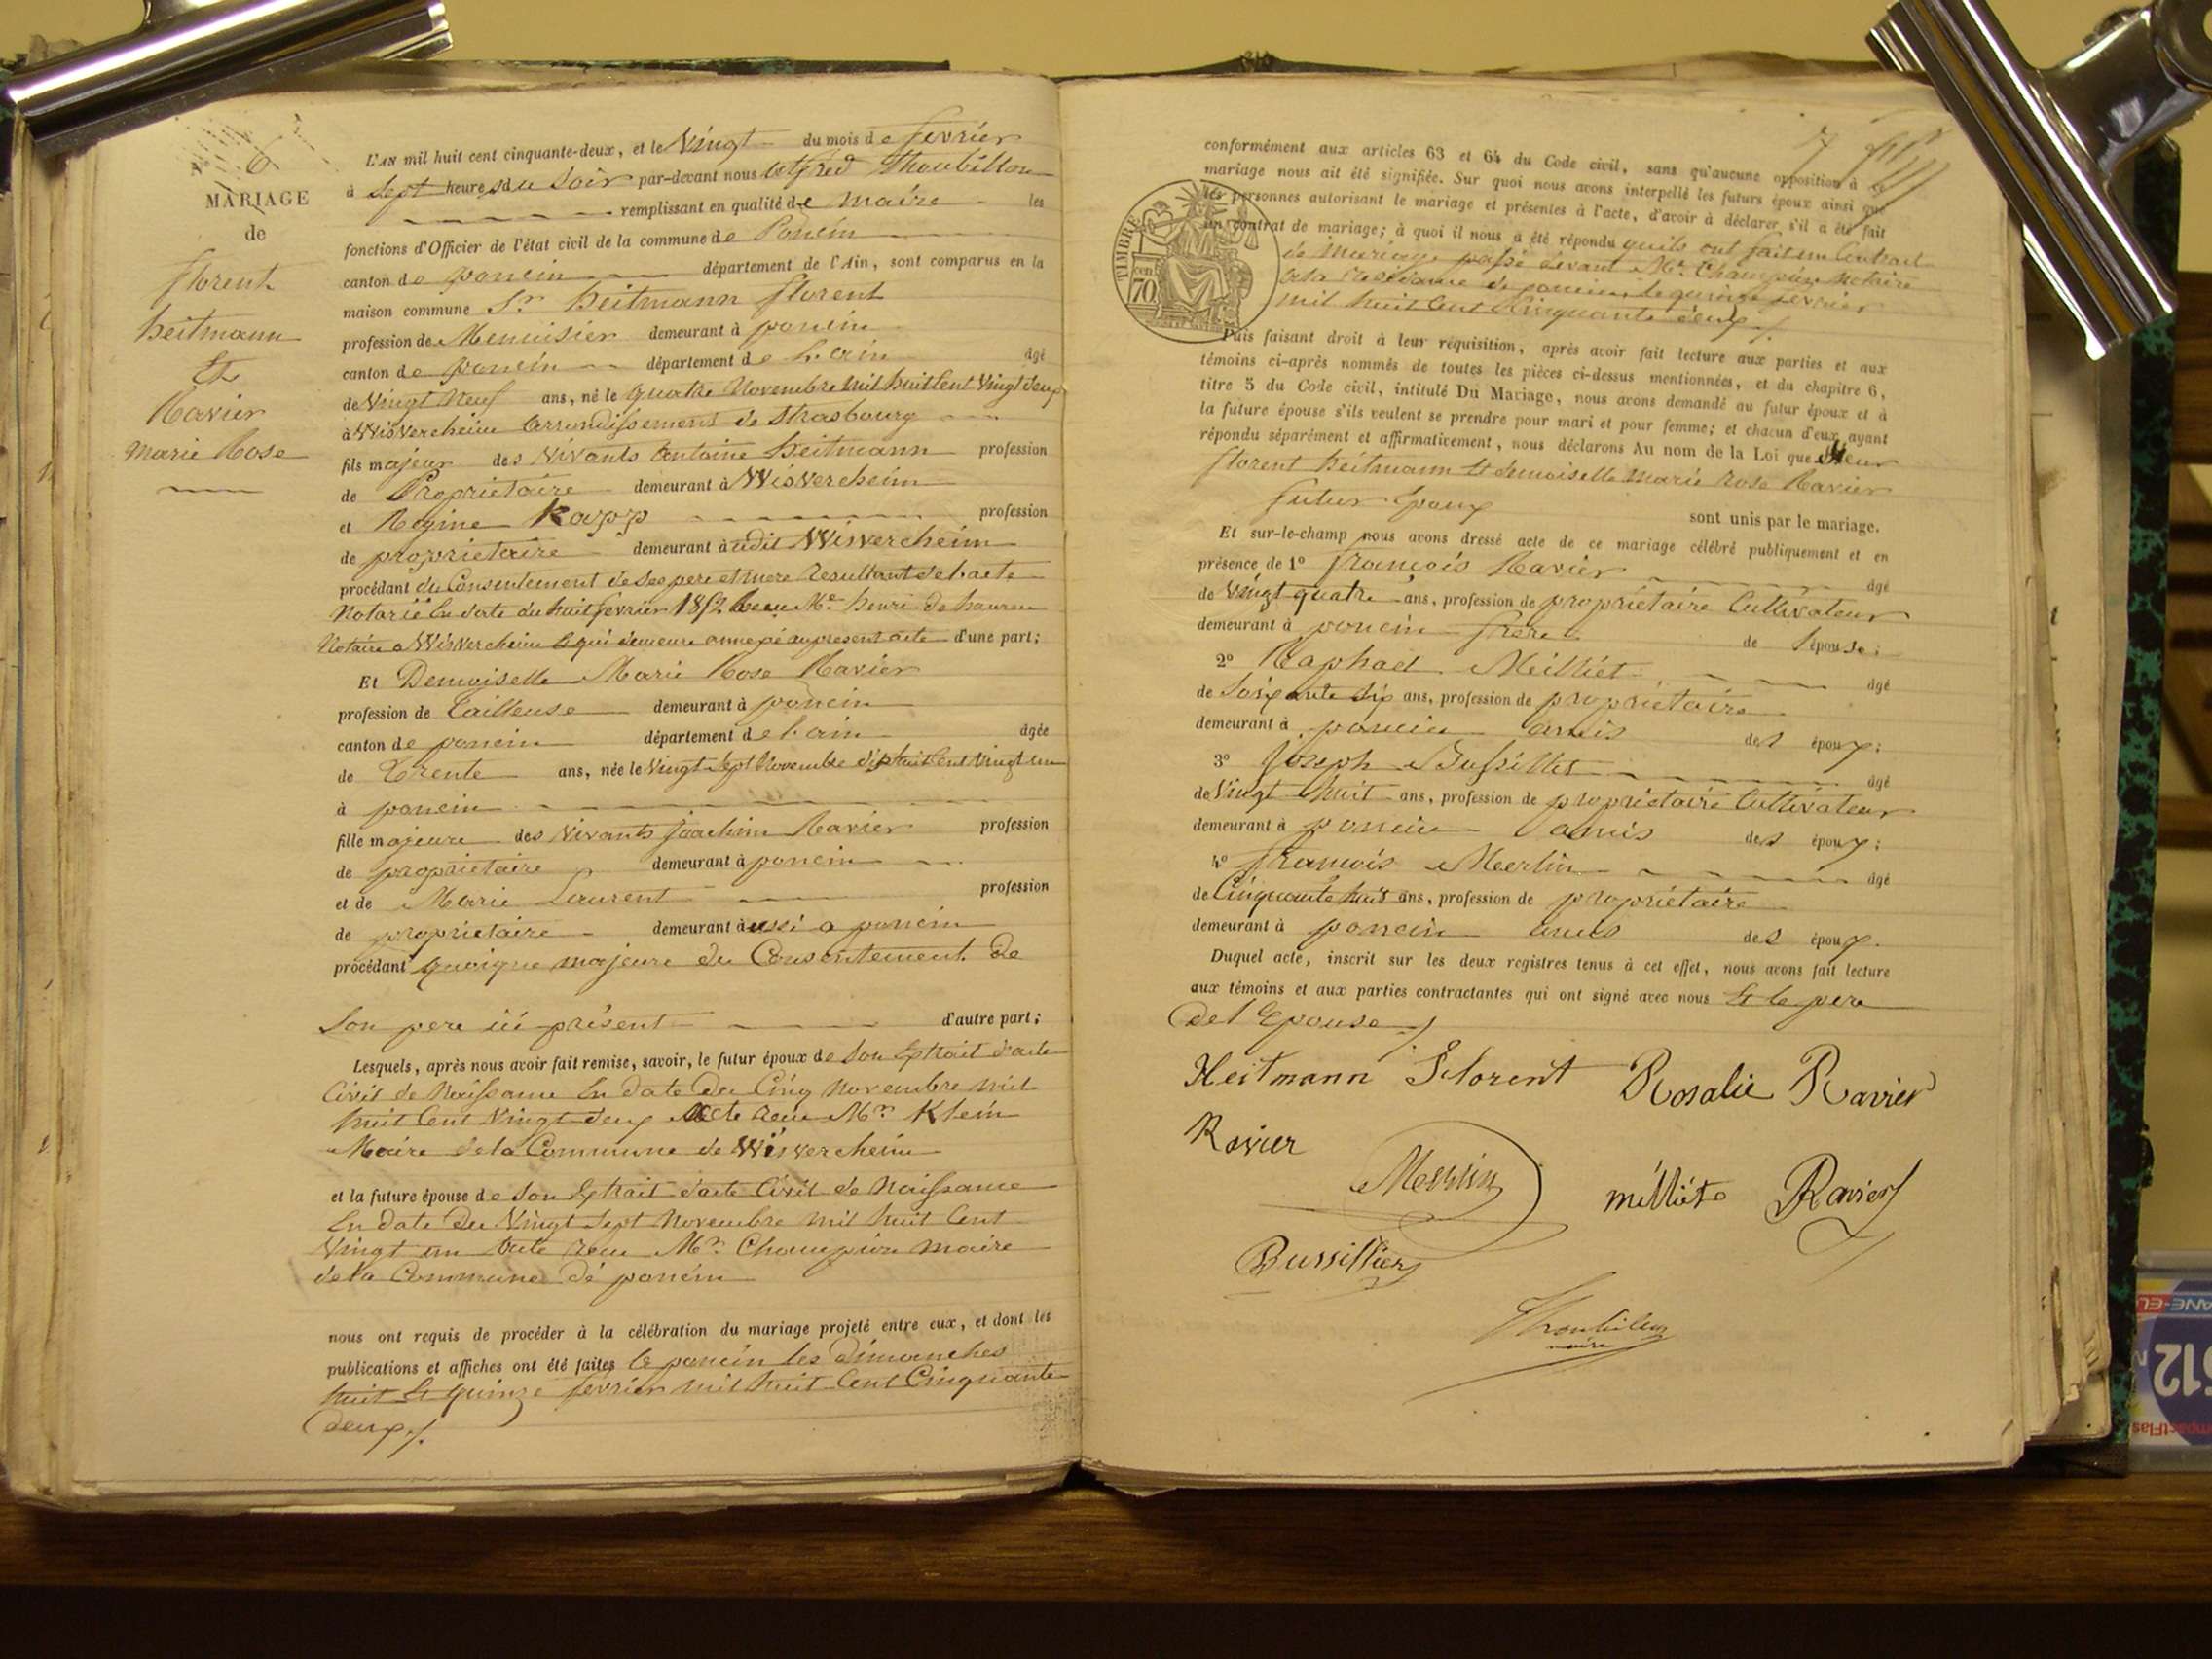 6
MARIAGE
de
florent
heitmann
Et
Ravier
marie Rose
L'AN mil huit cent cinquante-deux, et le Vingt du mois de fevrier
à Sept heures du Soir par-devant nous Alfred Thoubillon
remplissant en qualité de maire les
fonctions d'Officier de l'état civil de la commune de Poncin
canton de poncin département de l'Ain, sont comparus en la
maison commune Sr heitmann florent
profession de Menuisier demeurant à poncin
canton de poncin département de L'ain âgé
de Vingt Neuf ans, né le quatre Novembre mil huit Cent Vingt deux
à Wisvercheim arrondissement de Strasbourg
fils majeur des Vivants Antoine heitmann profession
de Proprietaire demeurant à Wisvercheim
et Regine Kapp profession
de proprietaire demeurant à udit Wisvercheim
procédant du Consentement de Ses pere et mere Resultant de l'acte
Notarié En date du huit fevrier 1852 Me henri
Notaire a Wisvercheim qui demeure annexé au present acte d'une part;
Et Demoiselle Marie Rose Ravier
profession de Tailleuse demeurant à poncin
canton de poncin département de l'ain âgée
de Trente ans, née le Vingt Sept Novembre dix huit Cent Vingt un
à poncin
fille majeure des Vivants joachim Ravier profession
de proprietaire demeurant à poncin
et de Marie Laurent profession
de proprietaire demeurant à ussi a poncin
procédant quoique majeure du Consentement De
Son pere ici présent d'autre part;
Lesquels, après nous avoir fait remise, savoir, le futur époux de Son Extrait d'acte
Civil de Naissance En date du Cinq Novembre mil
huit Cent Vingt deux Mr Klein
Maire de la Commune de Wisvercheim
et la future épouse de Son Extrait d'acte Civil de Naissance
En date du Vingt Sept Novembre mil huit Cent
Vingt un Mr Champion maire
de la Commune de poncin
nous ont requis de procéder à la célébration du mariage projeté entre eux, et dont les
publications et affiches ont été faites a poncin les dimanches
huit Et quinze fevrier mil huit Cent Cinquante
deux /.
7
conformément aux articles 63 et 64 du Code civil, sans qu'aucune opposition à ce
mariage nous ait été signifiée. Sur quoi nous avons interpellé les futurs époux ainsi que
les personnes autorisant le mariage et présentes à l'acte, d'avoir à déclarer s'il a été fait
un contrat de mariage; à quoi il nous a été répondu quils ont fait un Contrait
de Mariage passé devant Me Champion Notaire
a la residance de poncin le quinze fevrier
mil huit Cent Cinquante deux /.
TIMBRE
70 cen
Puis faisant droit à leur réquisition, après avoir fait lecture aux parties et aux
témoins ci-après nommés de toutes les pièces ci-dessus mentionnées, et du chapitre 6,
titre 5 du Code civil, intitulé Du Mariage, nous avons demandé au futur époux et à
la future épouse s'ils veulent se prendre pour mari et pour femme; et chacun d'eux ayant
répondu séparément et affirmativement, nous déclarons Au nom de la Loi que Sieur
florent heitmann Et demoiselle marie rose Ravier
futur Epoux sont unis par le mariage.
Et sur-le-champ nous avons dressé acte de ce mariage célébré publiquement et en
présence de 1° francois Ravier âgé
de Vingt quatre ans, profession de propriétaire Cultivateur
demeurant à poncin frere de l'épouse;
2° Raphael Milliet âgé
de Soixante Six ans, profession de propriétaire
demeurant à poncin amis des époux;
3° Joseph Bussillet âgé
de Vingt huit ans, profession de propriétaire Cultivateur
demeurant à poncin amis des époux;
4° francois Merlin âgé
de Cinquante huit ans, profession de propriétaire
demeurant à poncin amis des époux.
Duquel acte, inscrit sur les deux registres tenus à cet effet, nous avons fait lecture
aux témoins et aux parties contractantes qui ont signé avec nous Et le pere
de l'Epouse /
Heitmann Florent Rosalie Ravier
Ravier
Merlin milliet Ravier
Bussillier
Thoubillon
maire
512